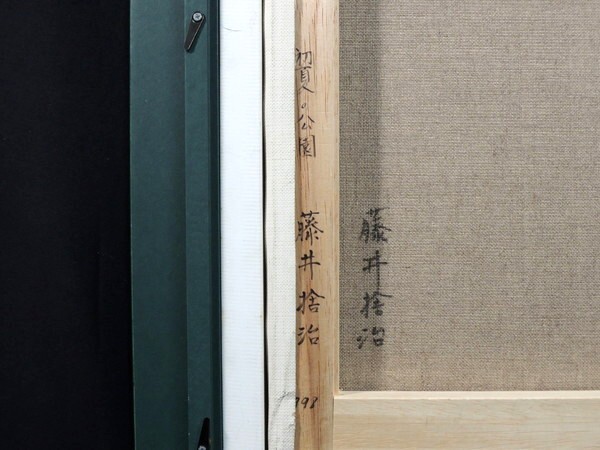 初夏の公園
藤井捨治
藤井捨治